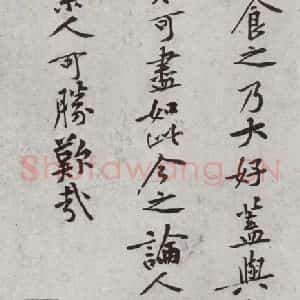 食之乃大好蓋與
可盡如此今之論人
人可勝歎哉
Shufawang.CN